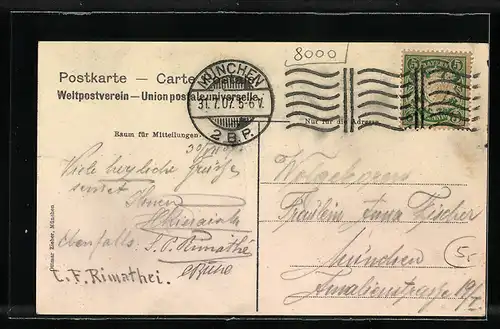 8000
Postkarte — Carte postale
Weltpostverein — Union postale universelle.
MÜNCHEN
31.7.07. 5-6 N.
2 B.P.
BAYERN
5 5
Nur für die Adresse.
Raum für Mitteilungen.
Viele herzliche Grüsse
sendet
Ihnen
Ebenfalls. S. P. Rimathé
C. F. Rimathei.
Wohlgeboren
Fräulein Anna Fischer
München
Amalienstrasse 19/
5.-
Ottmar Zieher, München